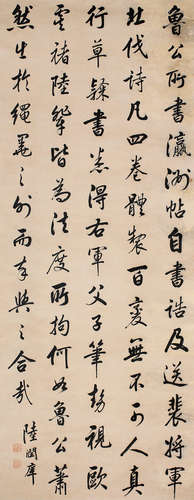 魯公所書瀛洲帖自書誥及送裴將軍
北伐詩凡四卷體製百變無不可人真
行草隸書悉得右軍父子筆勢視歐
虞褚陸輩皆為法度所拘何如魯公蕭
然出於繩墨之外而卒與之合哉
陸潤庠